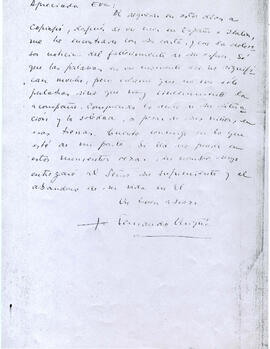 Apreciada Eva:
Al regresar en estos días a
Copiapó, después de un mes en España e Italia,
me he encontrado con su carta, y con la dolorosa
noticia del fallecimiento de su esposo. Sé
que las palabras en un momento así no significan
mucho, pero créame que no son sólo
palabras sino que muy sinceramente la
acompaño. Comprendo su dolor y su situación
y la soledad, a pesar de sus niños, en
esas tierras. Cuente conmigo en lo que
esté de mi parte. Si Ud. no puede en
estos momentos rezar, en nombre suyo
entregaré al Señor su sufrimiento y el
abandono de su vida en El
Un buen abrazo
+ Fernando Ariztía